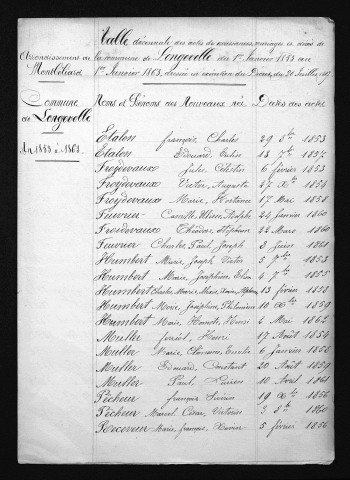 Table décennale des actes de naissances, mariages et décès de
la commune de Longevelle du 1er Janvier 1853 au
1er Janvier 1863, dressée en exécution du Décret du 20 Juillet 1807
Arrondissement de
Montbéliard
Commune
de Longevelle
An 1853 à 1863
Noms et Prénoms des Nouveaux nés. Dates des actes
Etalon françois Charles 29 8bre 1853
Etalon Edouard Jules 13 7bre 1857
Froydevaux Jules Célestin 6 février 1853
Froydevaux Victor, Auguste 27 Xbre 1854
Froydevaux Marie, Hortance 17 Mai 1858
Camille, Ulisse, Rodolphe 24 janvier 1860
Froidevaux Théodor, Stéphane 22 Mars 1860
Charles, Paul, Joseph 3 1861
Humbert Marie Joseph Victor 5 7bre 1853
Humbert Marie, Joséphine, 4 7bre 1855
Humbert Charles, Marie 13 février 1858
Humbert Marie, Joséphine, Philomène 10 Xbre 1859
Humbert Marie, Henri 4 Mai 1862
Muller Henri 17 Août 1854
Muller Marie, 6 janvier 1858
Muller Edouard, Constant 20 Août 1859
Muller Paul, Lucien 10 Avril 1861
Pécheur françois 19 Xbre 1856
Pécheur Marcel César, Victorin 3 8bre 1860
Receveur Marie, françois, Xavier 5 février 1856